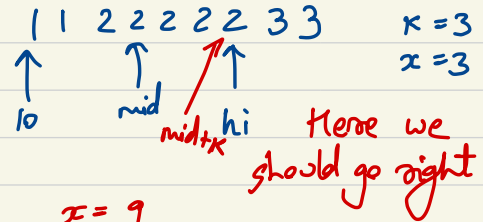 1 1 2 2 2 2 2 3 3 K = 3
x = 3
lo mid mid+K hi Here we
should go right
x = 9